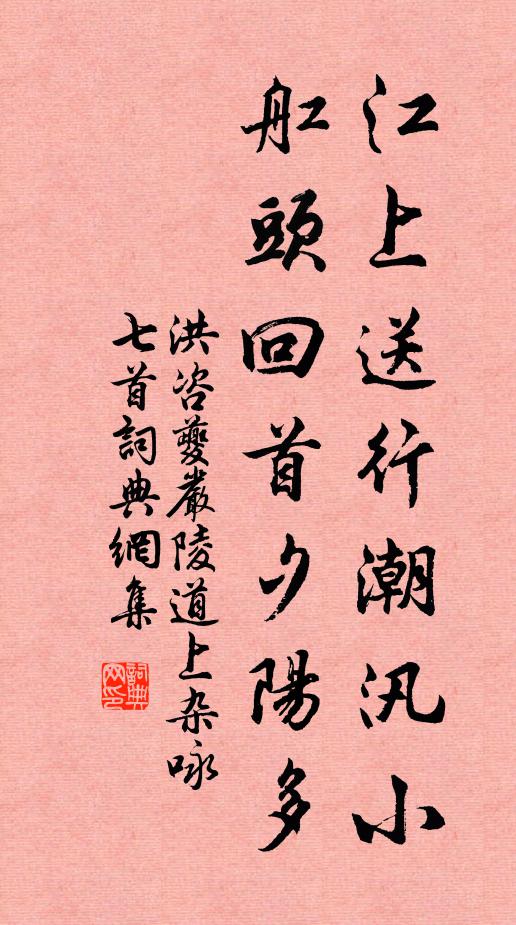 江上送行潮汛小
舡頭回首夕陽多
洪咨夔嚴陵道上杂咏
七首詞典網集
詞典
网印